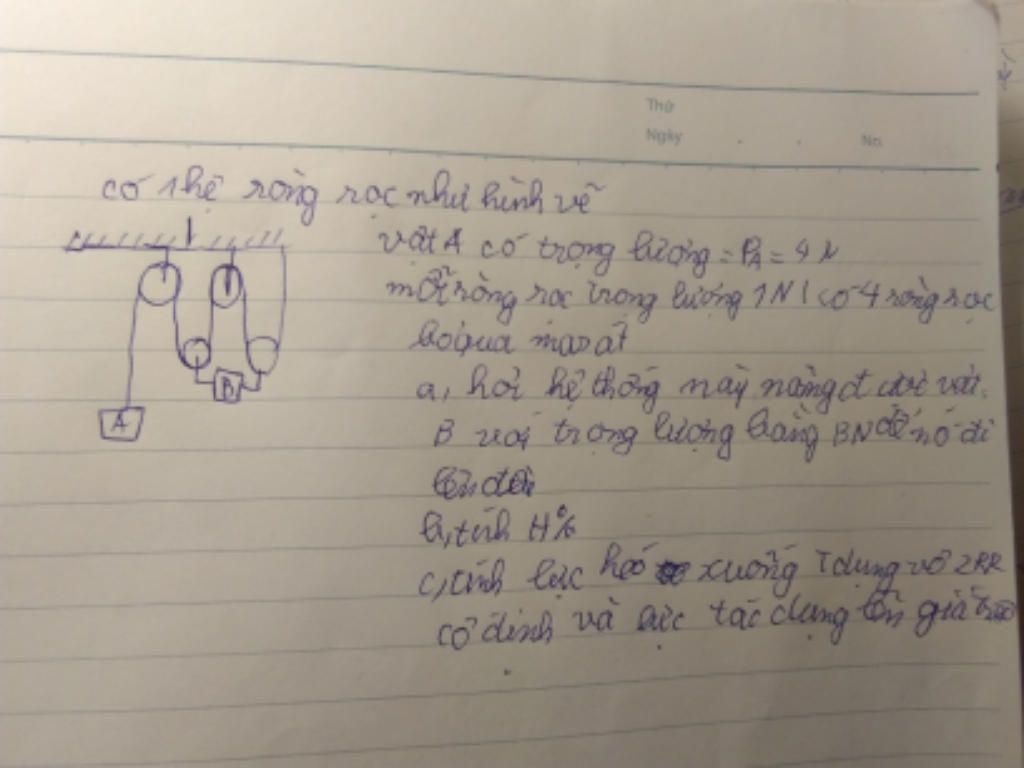 Thứ
Ngày No.
có 1 hệ ròng rọc như hình vẽ
vật A có trọng lượng = PA = 4 N
mỗi ròng rọc trọng lượng 1N ( có 4 ròng rọc
bỏ qua ma sát
a, hỏi hệ thống này nâng được vật
B với trọng lượng bằng BN để nó đi
lên đều
b, tính H%
c, tính lực kéo xuống tdụng vô 2RR
cố định và lực tác dụng lên giá treo
A
B